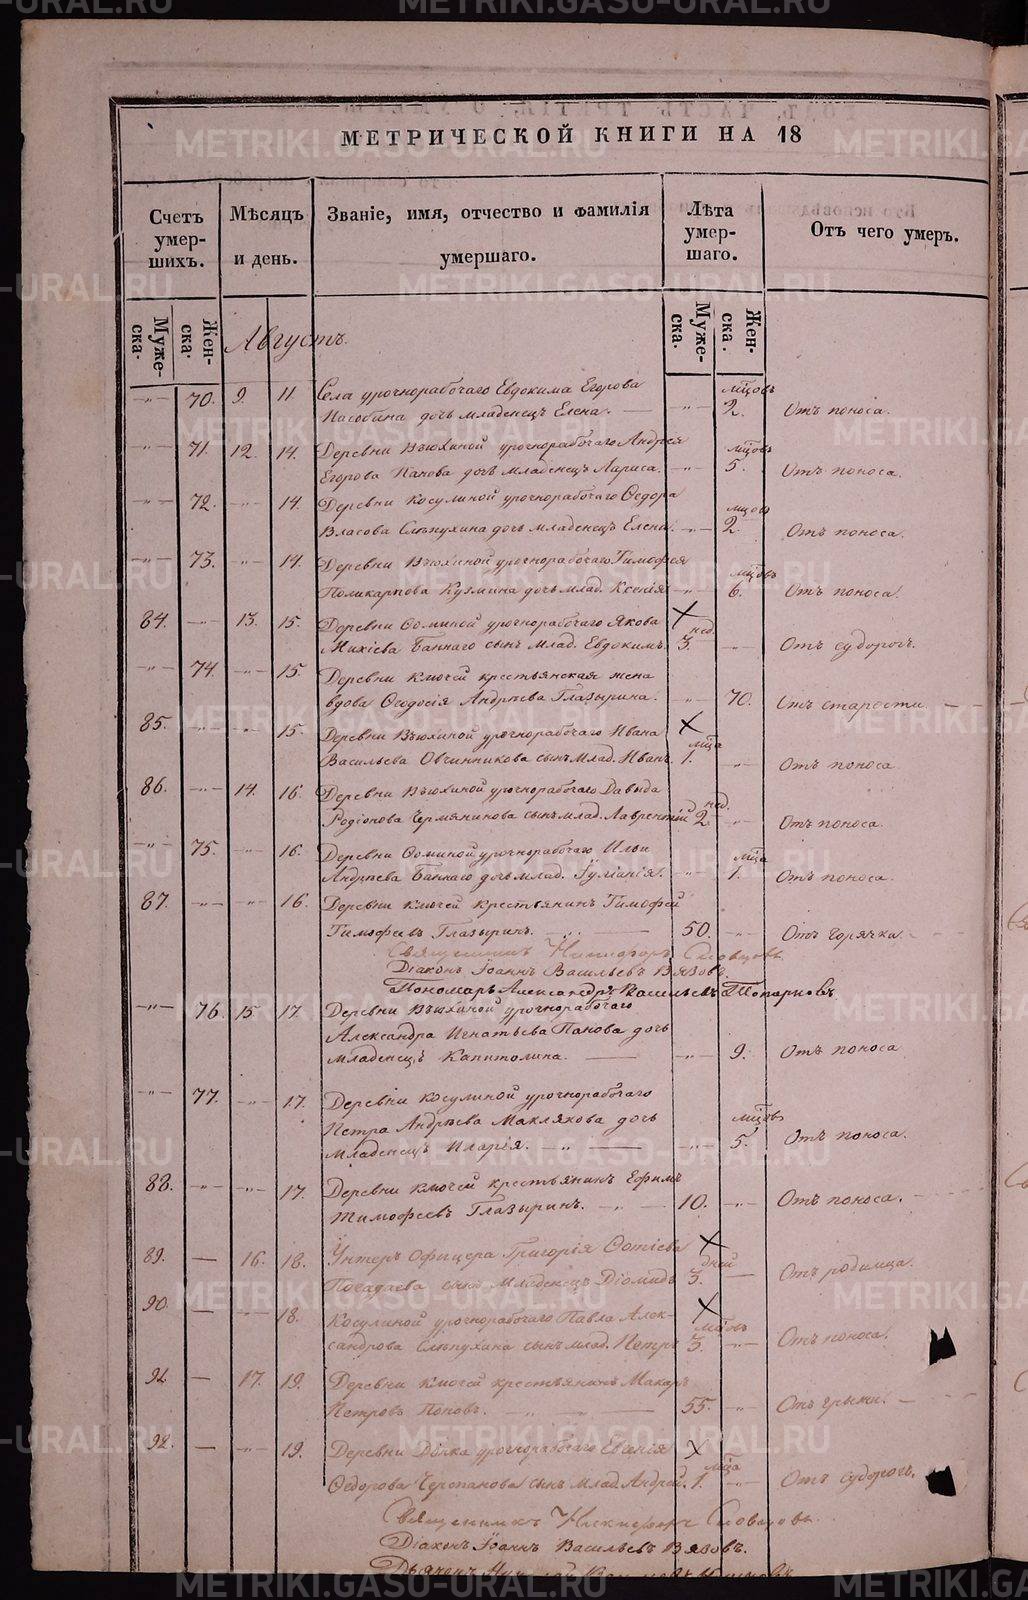 МЕТРИЧЕСКОЙ КНИГИ НА 18
Счетъ умершихъ.
Мѣсяцъ и день.
Званіе, имя, отчество и фамилія умершаго.
Лѣта умершаго.
Отъ чего умеръ.
Мужеска. Женска.
Мужеска. Женска.
Августъ.
-"- 70. 9. 11. Села урочнорабочаго Евдокима Егорова мѣсцовъ
дочь младенецъ Елена. -"- 2. Отъ поноса.
-"- 71. 12. 14. Деревни Вьюхиной урочнорабочаго Андрея мѣсцовъ
Егорова Панова дочь младенецъ Лариса. -"- 5. Отъ поноса.
-"- 72. -"- 14. Деревни Косулиной урочнорабочаго Ѳедора мѣсцовъ
Власова Слѣпухина дочь младенецъ Елена. -"- 2. Отъ поноса.
-"- 73. -"- 14. Деревни Вьюхиной урочнорабочаго Тимофея мѣсцовъ
Поликарпова Кузмина дочь млад. Ксенія. -"- 6. Отъ поноса.
84. -"- 13. 15. Деревни Ѳоминой урочнорабочаго Якова нед.
Михіева Баннаго сынъ млад. Евдокимъ. 3. -"- Отъ судорогъ.
-"- 74. -"- 15. Деревни Ключей крестьянская жена
вдова Ѳеодосія Андрѣева Глазырина. -"- 70. Отъ старости
85. -"- -"- 15. Деревни Вьюхиной урочнорабочаго Ивана мѣсца
Васильева Овчинникова сынъ млад. Иванъ. 1. -"- Отъ поноса
86. -"- 14. 16. Деревни Вьюхиной урочнорабочаго Давыда нед.
Родіонова Чермянинова сынъ млад. Лаврентій 2. -"- Отъ поноса.
-"- 75. -"- 16. Деревни Ѳоминой урочнорабочаго Ильи мѣсца
Андрѣева Баннаго дочь млад. Іуліанія. -"- 1. Отъ поноса.
87. -"- -"- 16. Деревни Ключей крестьянинъ Тимофей
Тимофеевъ Глазыринъ. 50. -"- Отъ горячки.
Священникъ Никифоръ Словцовъ.
Діаконъ Іоаннъ Васильевъ Вязовъ.
Пономарь Александръ Васильевъ Топорковъ
-"- 76. 15. 17. Деревни Вьюхиной урочнорабочаго
Александра Игнатьева Панова дочь
младенецъ Капитолина. -"- 9. Отъ поноса
-"- 77. -"- 17. Деревни Косулиной урочнорабочаго
Петра Андрѣева Маклякова дочь мѣсцовъ
младенецъ Иларія. -"- 5. Отъ поноса.
88. -"- -"- 17. Деревни Ключей крестьянинъ Ефимъ
Тимофеевъ Глазыринъ. 10. -"- Отъ поноса.
89. — 16. 18. Унтеръ Офицера Григорія Ѳотіева дней
сынъ младенецъ Діомидъ 3. — Отъ родимца.
90. — 18. Косулиной урочнорабочаго Павла Алек- мѣсцовъ
сандрова Слѣпухина сынъ млад. Петръ 3. -"- Отъ поноса.
91. — 17. 19. Деревни Ключей крестьянинъ Макаръ
Петровъ Поповъ. 55. -"- Отъ грыжи.
92. — -"- 19. Деревни урочнорабочаго Евгенія мѣсца
Ѳедорова Черепанова сынъ млад. Андрей. 1. -"- Отъ судорогъ.
Священникъ Никифоръ Словцовъ.
Діаконъ Іоаннъ Васильевъ Вязовъ.
METRIKI.GASO-URAL.RU